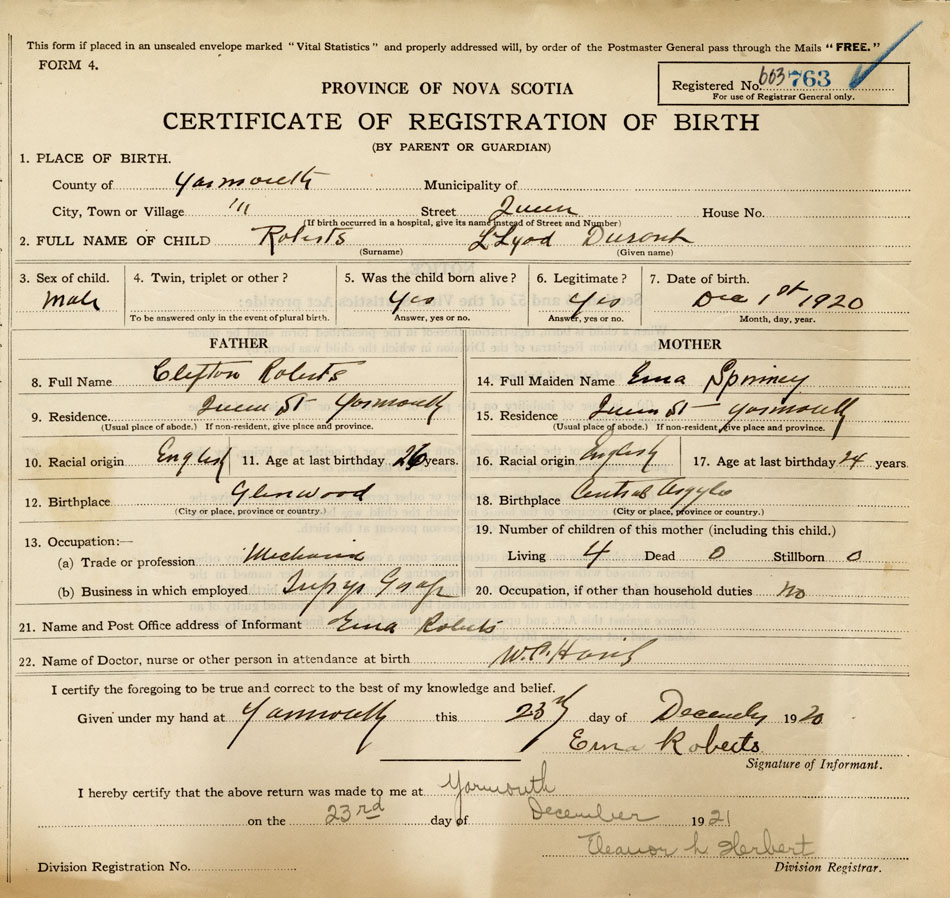 This form if placed in an unsealed envelope marked "Vital Statistics" and properly addressed will, by order of the Postmaster General pass through the Mails "FREE."
FORM 4.
Registered No. 603763
For use of Registrar General only.
PROVINCE OF NOVA SCOTIA
CERTIFICATE OF REGISTRATION OF BIRTH
(BY PARENT OR GUARDIAN)
1. PLACE OF BIRTH.
County of Yarmouth Municipality of
City, Town or Village "" Street Queen House No.
(If birth occurred in a hospital, give its name instead of Street and Number)
2. FULL NAME OF CHILD Roberts LLyod Durant
(Surname) (Given name)
3. Sex of child. 4. Twin, triplet or other? 5. Was the child born alive? 6. Legitimate? 7. Date of birth.
Male Yes Yes Dec 1st 1920
To be answered only in the event of plural birth. Answer, yes or no. Answer, yes or no. Month, day, year.
FATHER
8. Full Name Clifton Roberts
9. Residence. Queen St Yarmouth
(Usual place of abode.) If non-resident, give place and province.
10. Racial origin English 11. Age at last birthday 26 years.
12. Birthplace Glenwood
(City or place, province or country.)
13. Occupation:—
(a) Trade or profession Mechanic
(b) Business in which employed
MOTHER
14. Full Maiden Name Erna Spinney
15. Residence Queen St - Yarmouth
(Usual place of abode.) If non-resident, give place and province.
16. Racial origin English 17. Age at last birthday 24 years
18. Birthplace Central Argyle
(City or place, province or country.)
19. Number of children of this mother (including this child.)
Living 4 Dead 0 Stillborn 0
20. Occupation, if other than household duties no
21. Name and Post Office address of Informant Erna Roberts
22. Name of Doctor, nurse or other person in attendance at birth W.C.
I certify the foregoing to be true and correct to the best of my knowledge and belief.
Given under my hand at Yarmouth this 23rd day of December 1920
Erna Roberts
Signature of Informant.
I hereby certify that the above return was made to me at Yarmouth
on the 23rd day of December 1921
Eleanor L Herbert
Division Registration No. Division Registrar.